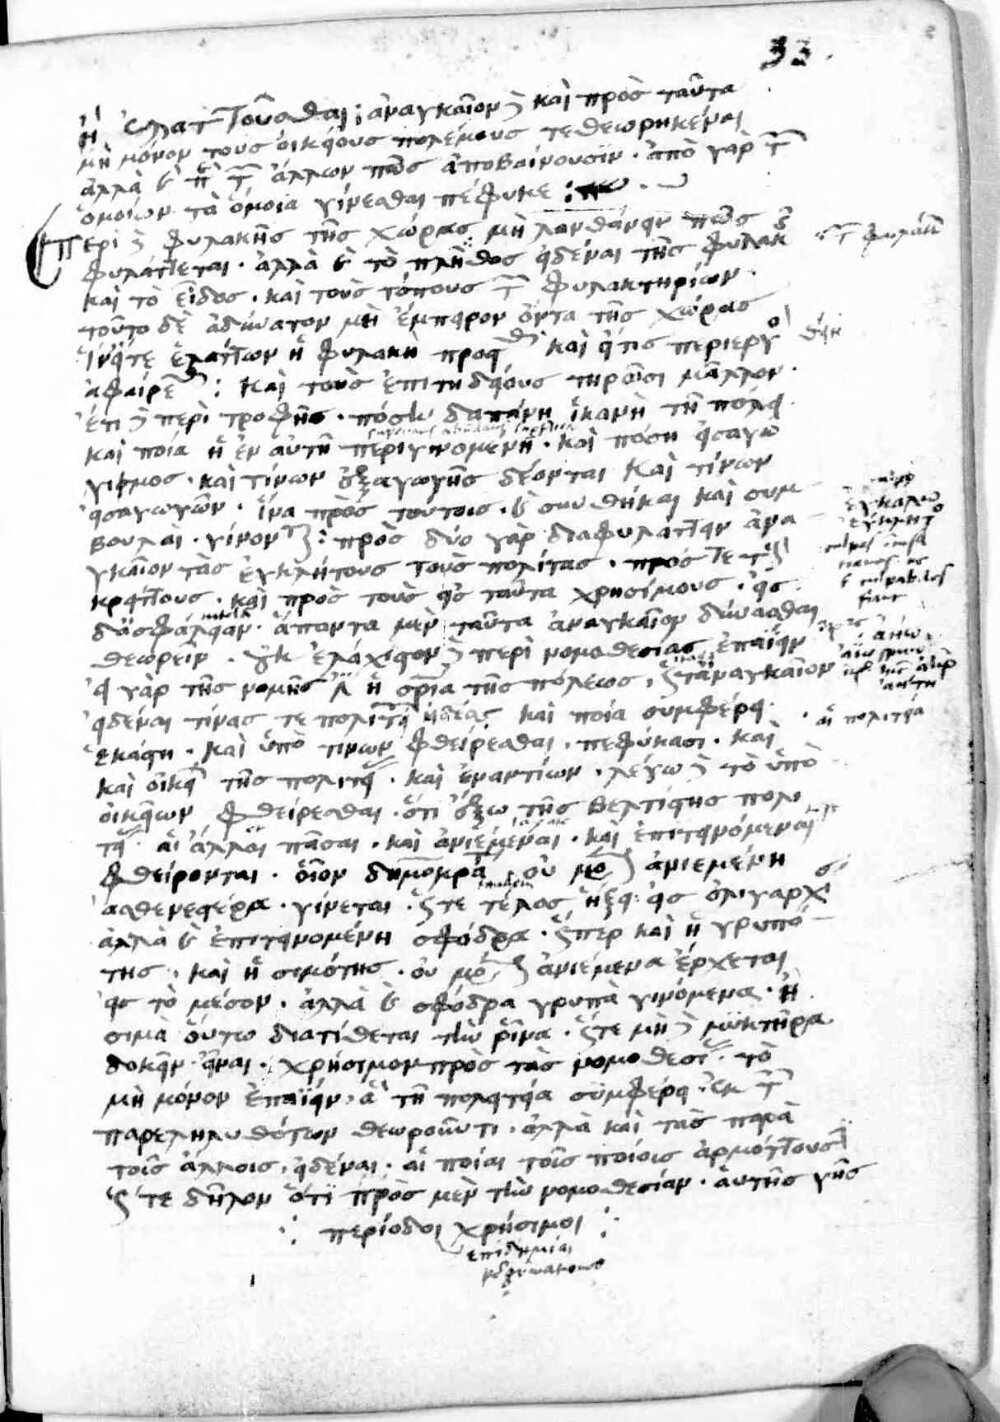 33
ἢ ἐλαττοῦσθαι; ἀναγκαῖον δὲ καὶ πρὸς ταῦτα
μὴ μόνον τοὺς οἰκείους πολέμους τεθεωρηκέναι
ἀλλὰ καὶ τῶν ἄλλων πῶς ἀποβαίνουσιν. ἀπὸ γὰρ τῶν
ὁμοίων τὰ ὅμοια γίνεσθαι πέφυκε:
Περὶ δὲ φυλακῆς τῆς χώρας μὴ λανθάνειν πῶς
φυλάττεται. ἀλλὰ καὶ τὸ πλῆθος εἰδέναι τῆς φυλακ
τῶν φυλάκων
καὶ τὸ εἶδος. καὶ τοὺς τόπους τῶν φυλακτηρίων.
τοῦτο δὲ ἀδύνατον μὴ ἔμπειρον ὄντα τῆς χώρας
ἵν' εἴτε ἐλάττων ἡ φυλακὴ προστεθῇ καὶ εἴ τις περίεργος
ἀφαιρεθῇ: καὶ τοὺς ἐπιτηδείους τηρῶσι μᾶλλον.
ἔτι δὲ περὶ τροφῆς. πόση δαπάνη ἱκανὴ τῇ πόλει
καὶ ποία ἡ ἐν αὐτῇ περιγινομένη. καὶ πόση εἰσαγώ
γιμος. καὶ τίνων ἐξαγωγῆς δέονται καὶ τίνων
εἰσαγωγῶν. ἵνα πρὸς τούτοις. καὶ συνθῆκαι καὶ συμ
βουλαὶ. γίνονται: πρὸς δύο γὰρ διαφυλάττειν ἀνα
γκαῖον τὰς ἐγκλήτους τοὺς πολίτας. πρός τε τοὺς
κρείττους. καὶ πρὸς τοὺς εἰς ταῦτα χρησίμους. εἰς
δ' ἀσφάλειαν. ἅπαντα μὲν ταῦτα ἀναγκαῖον δύνασθαι
θεωρεῖν. οὐκ ἐλάχιστον δὲ περὶ νομοθεσίας ἐπαΐειν
ἐν γὰρ τῆς νομῆς ἡ σωτηρία τῆς πόλεως, ὥστ' ἀναγκαῖον
εἰδέναι τίνας τε πολιτειῶν ἰδέας καὶ ποία συμφέρει
αἱ πολιτεία
ἑκάστη. καὶ ὑπὸ τίνων φθείρεσθαι. πεφύκασι. καὶ
καὶ οἰκείων τῆς πολιτείας. καὶ ἐναντίων. λέγω δὲ τὸ ὑπὸ
οἰκείων φθείρεσθαι. ὅτι ἔξω τῆς βελτίστης πολι
τείας αἱ ἄλλαι πᾶσαι. καὶ ἀνιέμεναι. καὶ ἐπιτεινόμεναι
φθείρονται. οἷον δημοκρατία. οὐ μόνον ἀνιεμένη
ἀσθενεστέρα. γίνεται. ὥστε τέλος ἥξει εἰς ὀλιγαρχ
ἀλλὰ καὶ ἐπιτεινομένη σφόδρα. ὥσπερ καὶ ἡ γρυπό
της. καὶ ἡ σιμότης. οὐ μόνον ἀνιέμενα ἔρχεται
εἰς τὸ μέσον. ἀλλὰ καὶ σφόδρα γρυπὰ γινόμενα. ἢ
σιμὰ οὕτω διατίθεται τὴν ῥῖνα. ὥστε μὴ δὲ μυκτῆρα
δοκεῖν εἶναι. χρήσιμον πρὸς τὰς νομοθεσίας. τὸ
μὴ μόνον ἐπαΐειν. ἃ τῇ πολιτεία συμφέρει. ἐκ τῶν
παρεληλυθότων θεωροῦντι. ἀλλὰ καὶ τὰς παρὰ
τοῖς ἄλλοις. εἰδέναι. αἱ ποῖαι τοῖς ποίοις ἁρμόττουσι
ὥστε δῆλον ὅτι πρὸς μὲν τὴν νομοθεσίαν. αὐτῆς γῆς
περίοδοι χρήσιμοι
ἐπιδημίαι